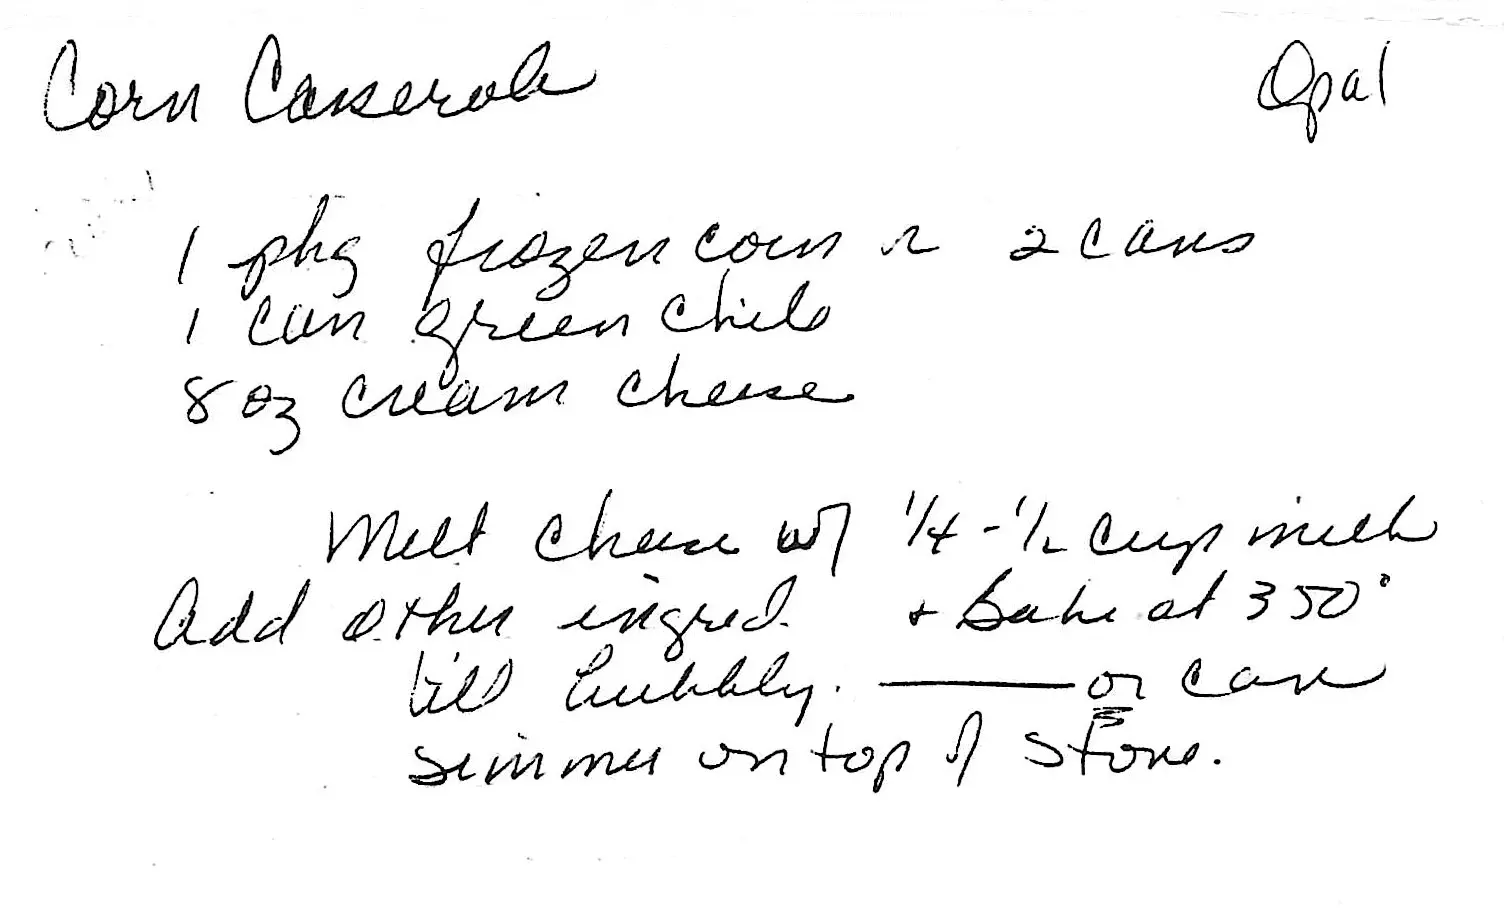 Corn Casserole Opal
1 pkg frozen corn or 2 cans
1 can green chile
8 oz cream cheese
Melt cheese w/ 1/4 - 1/2 cup milk
Add other ingred. + Bake at 350°
till bubbly. —— or can
simmer on top of stove.